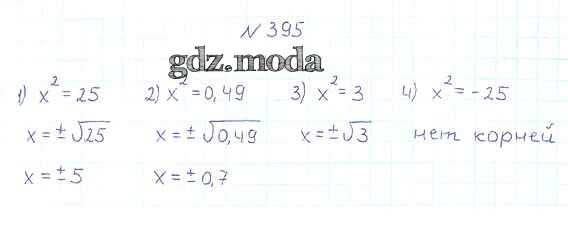 N 395
gdz.moda
1) x² = 25 2) x² = 0,49 3) x² = 3 4) x² = -25
x = ±√25 x = ±√0,49 x = ±√3 нет корней
x = ±5 x = ±0,7